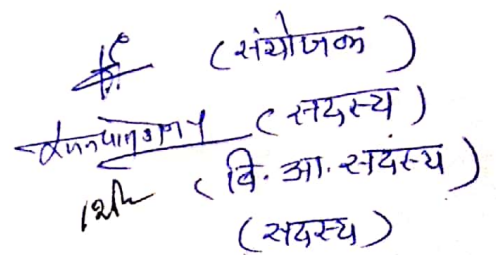 (संयोजक)
(सदस्य)
(वि. आ. सदस्य)
(सदस्य)